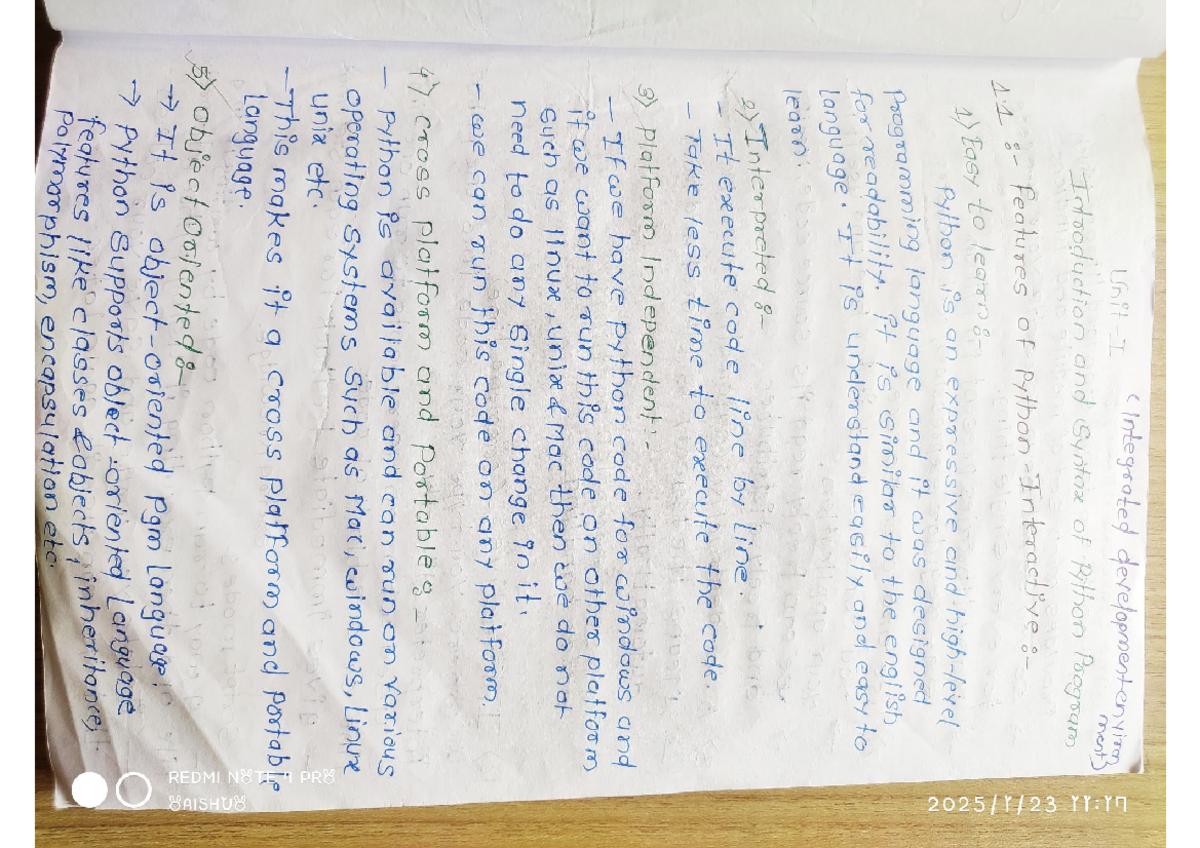 Unit-I
(Integrated development environment)
Introduction and Syntax of Python Program
1.1 :- features of python - Interactive :-
1) Easy to learn :-
python is an expressive and high-level
programming language and it was designed
for readability. it is similar to the english
language. It is understand easily and easy to
learn.
2) Interpreted :-
- It execute code line by line.
- Take less time to execute the code.
3) platform Independent :-
- If we have python code for windows and
if we want to run this code on other platform
such as linux, unix & Mac then we do not
need to do any single change in it.
- we can run this code on any platform.
4) cross platform and Portable :-
- python is available and can run on various
operating systems such as Mac, windows, linux
unix etc.
- This makes it a cross platform and portable
language.
5) object oriented :-
→ It is object-oriented pgm language.
→ Python Supports object-oriented language
features like classes & objects, inheritance,
polymorphism, encapsulation etc.
REDMI NOTE 9 PRO
AISHU
2025/2/23 22:27